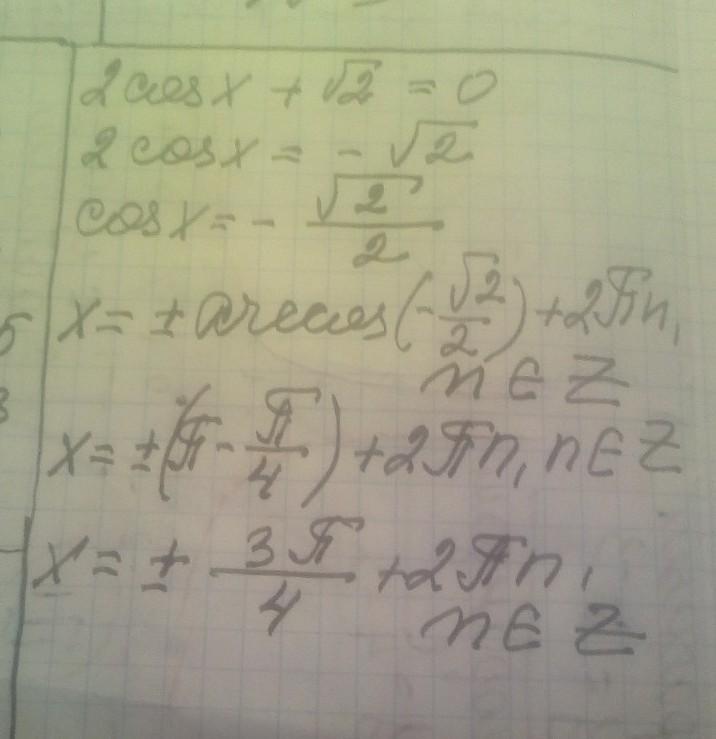 2cosx + √2 = 0
2cosx = - √2
cosx = - √2/2
x = ± arccos(-√2/2) + 2πn,
n ∈ Z
x = ±(π - π/4) + 2πn, n ∈ Z
x = ± 3π/4 + 2πn,
n ∈ Z